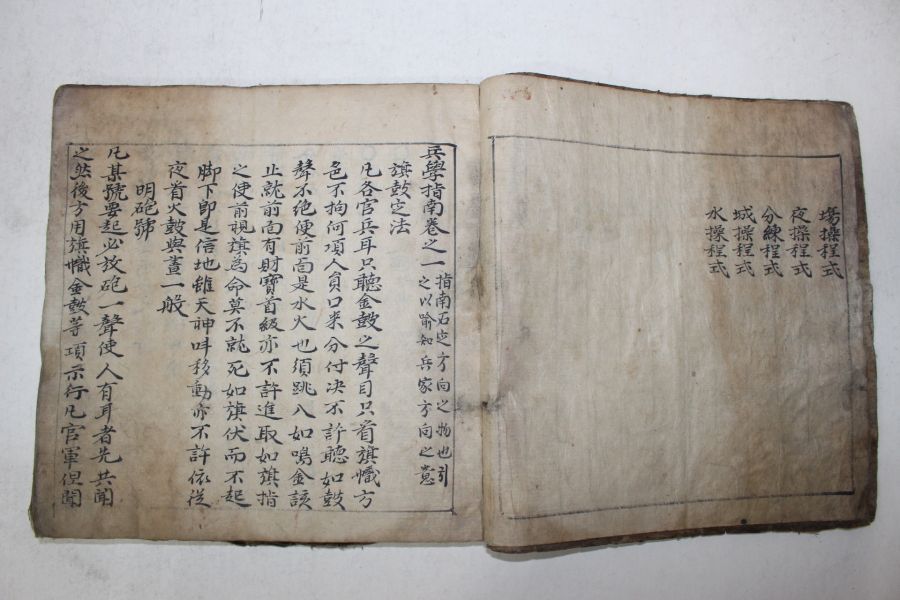 塲操程式
夜操程式
分練程式
城操程式
水操程式
兵學指南卷之一 指南石定方向之物也引
之以喻知兵家方向之意
旗鼓定法
凡各官兵耳只聽金鼓之聲目只看旗幟方
色不拘何項人員口來分付决不許聽如鼓
聲不絶便前面是水火也須跳入如鳴金該
止就前面有財寶首級亦不許進取如旗指
之使前視旗為命莫不就死如旗伏而不起
脚下卽是信地雖天神叫移動亦不許依從
夜看火鼓與晝一般
明砲號
凡某號要起必放砲一聲使人有耳者先共聞
之然後方用旗幟金鼓等項示行凡官軍但聞